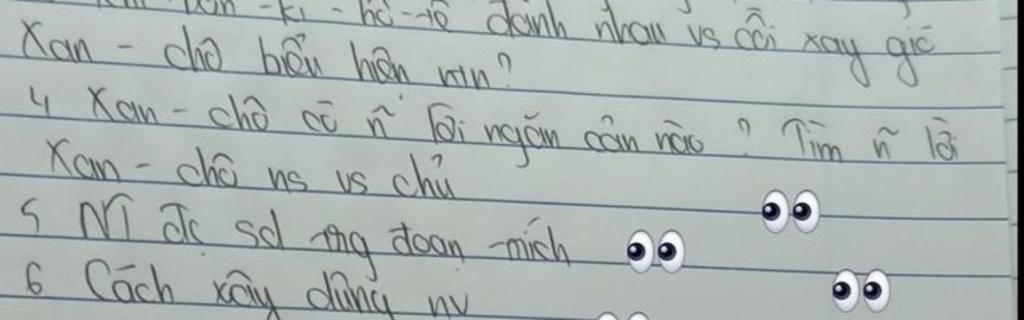 Đôn - ki - hô-tê đánh nhau vs cối xay gió
Xan - chô biểu hiện ntn?
4 Xan - chô có ~n lời ngăn cản nào? Tìm ~n lời
Xan - chô ns vs chủ
5 NT đc sd trg đoạn -mích
6 Cách xây dựng nv